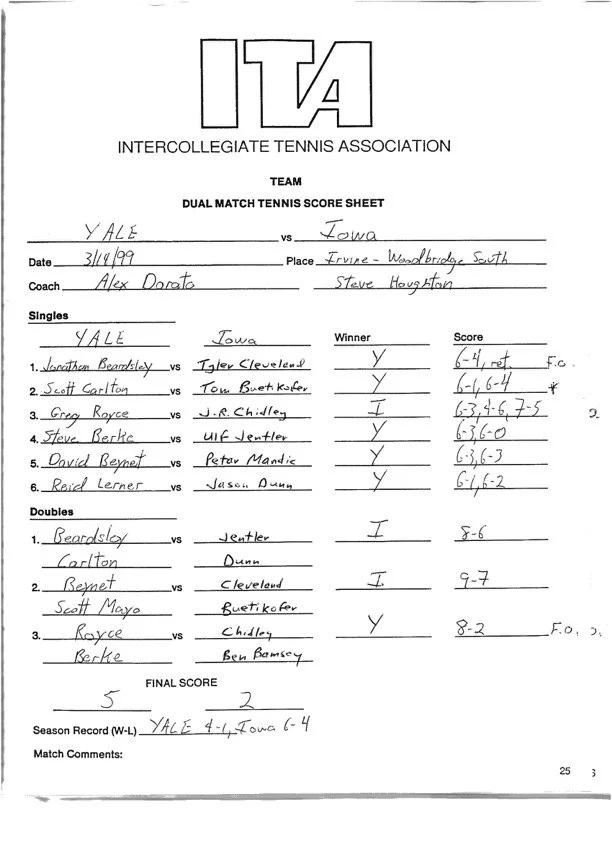 ITA
INTERCOLLEGIATE TENNIS ASSOCIATION
TEAM
DUAL MATCH TENNIS SCORE SHEET
YALE vs Iowa
Date 3/14/99 Place Irvine - Woodbridge South
Coach Alex Dorato Steve Houghton
Singles
YALE Iowa Winner Score
1. Jonathan Beardsley vs Tyler Cleveland Y 6-4, ret. F.O.
2. Scott Carlton vs Tom Buetikofer Y 6-1, 6-4 *
3. Greg Royce vs J.R. Chidley I 6-3, 4-6, 7-5
4. Steve Berke vs Ulf Jentler Y 6-3, 6-0
5. David Beynet vs Petar Mandic Y 6-3, 6-3
6. Reid Lerner vs Jason Dunn Y 6-1, 6-2
Doubles
1. Beardsley vs Jentler I 8-6
Carlton Dunn
2. Beynet vs Cleveland I 9-7
Scott Mayo Buetikofer
3. Royce vs Chidley Y 8-2 F.O.
Berke Ben Bamsey
FINAL SCORE
5 2
Season Record (W-L) YALE 4-1, Iowa 6-4
Match Comments:
25